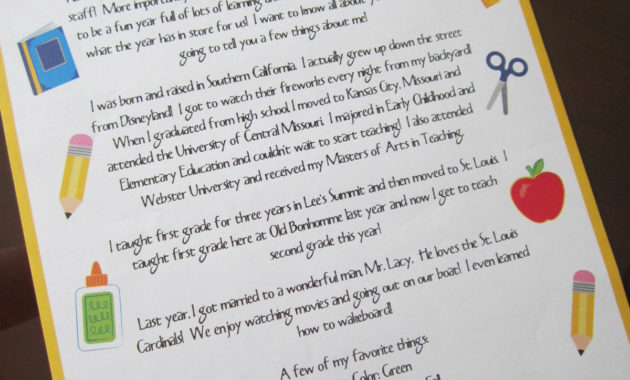 staff! More important
to be a fun year full of lots of learning
what the year has in store for us! I want to know all about
going to tell you a few things about me!
I was born and raised in Southern California. I actually grew up down the street
from Disneyland! I got to watch their fireworks every night from my backyard!
When I graduated from high school, I moved to Kansas City, Missouri and
attended the University of Central Missouri. I majored in Early Childhood and
Elementary Education and couldn't wait to start teaching! I also attended
Webster University and received my Masters of Arts in Teaching.
I taught first grade for three years in Lee's Summit and then moved to St. Louis. I
taught first grade here at Old Bonhomme last year and now I get to teach
second grade this year!
Last year, I got married to a wonderful man, Mr. Lacy. He loves the St. Louis
Cardinals! We enjoy watching movies and going out on our boat! I even learned
how to wakeboard!
A few of my favorite things:
Color: Green